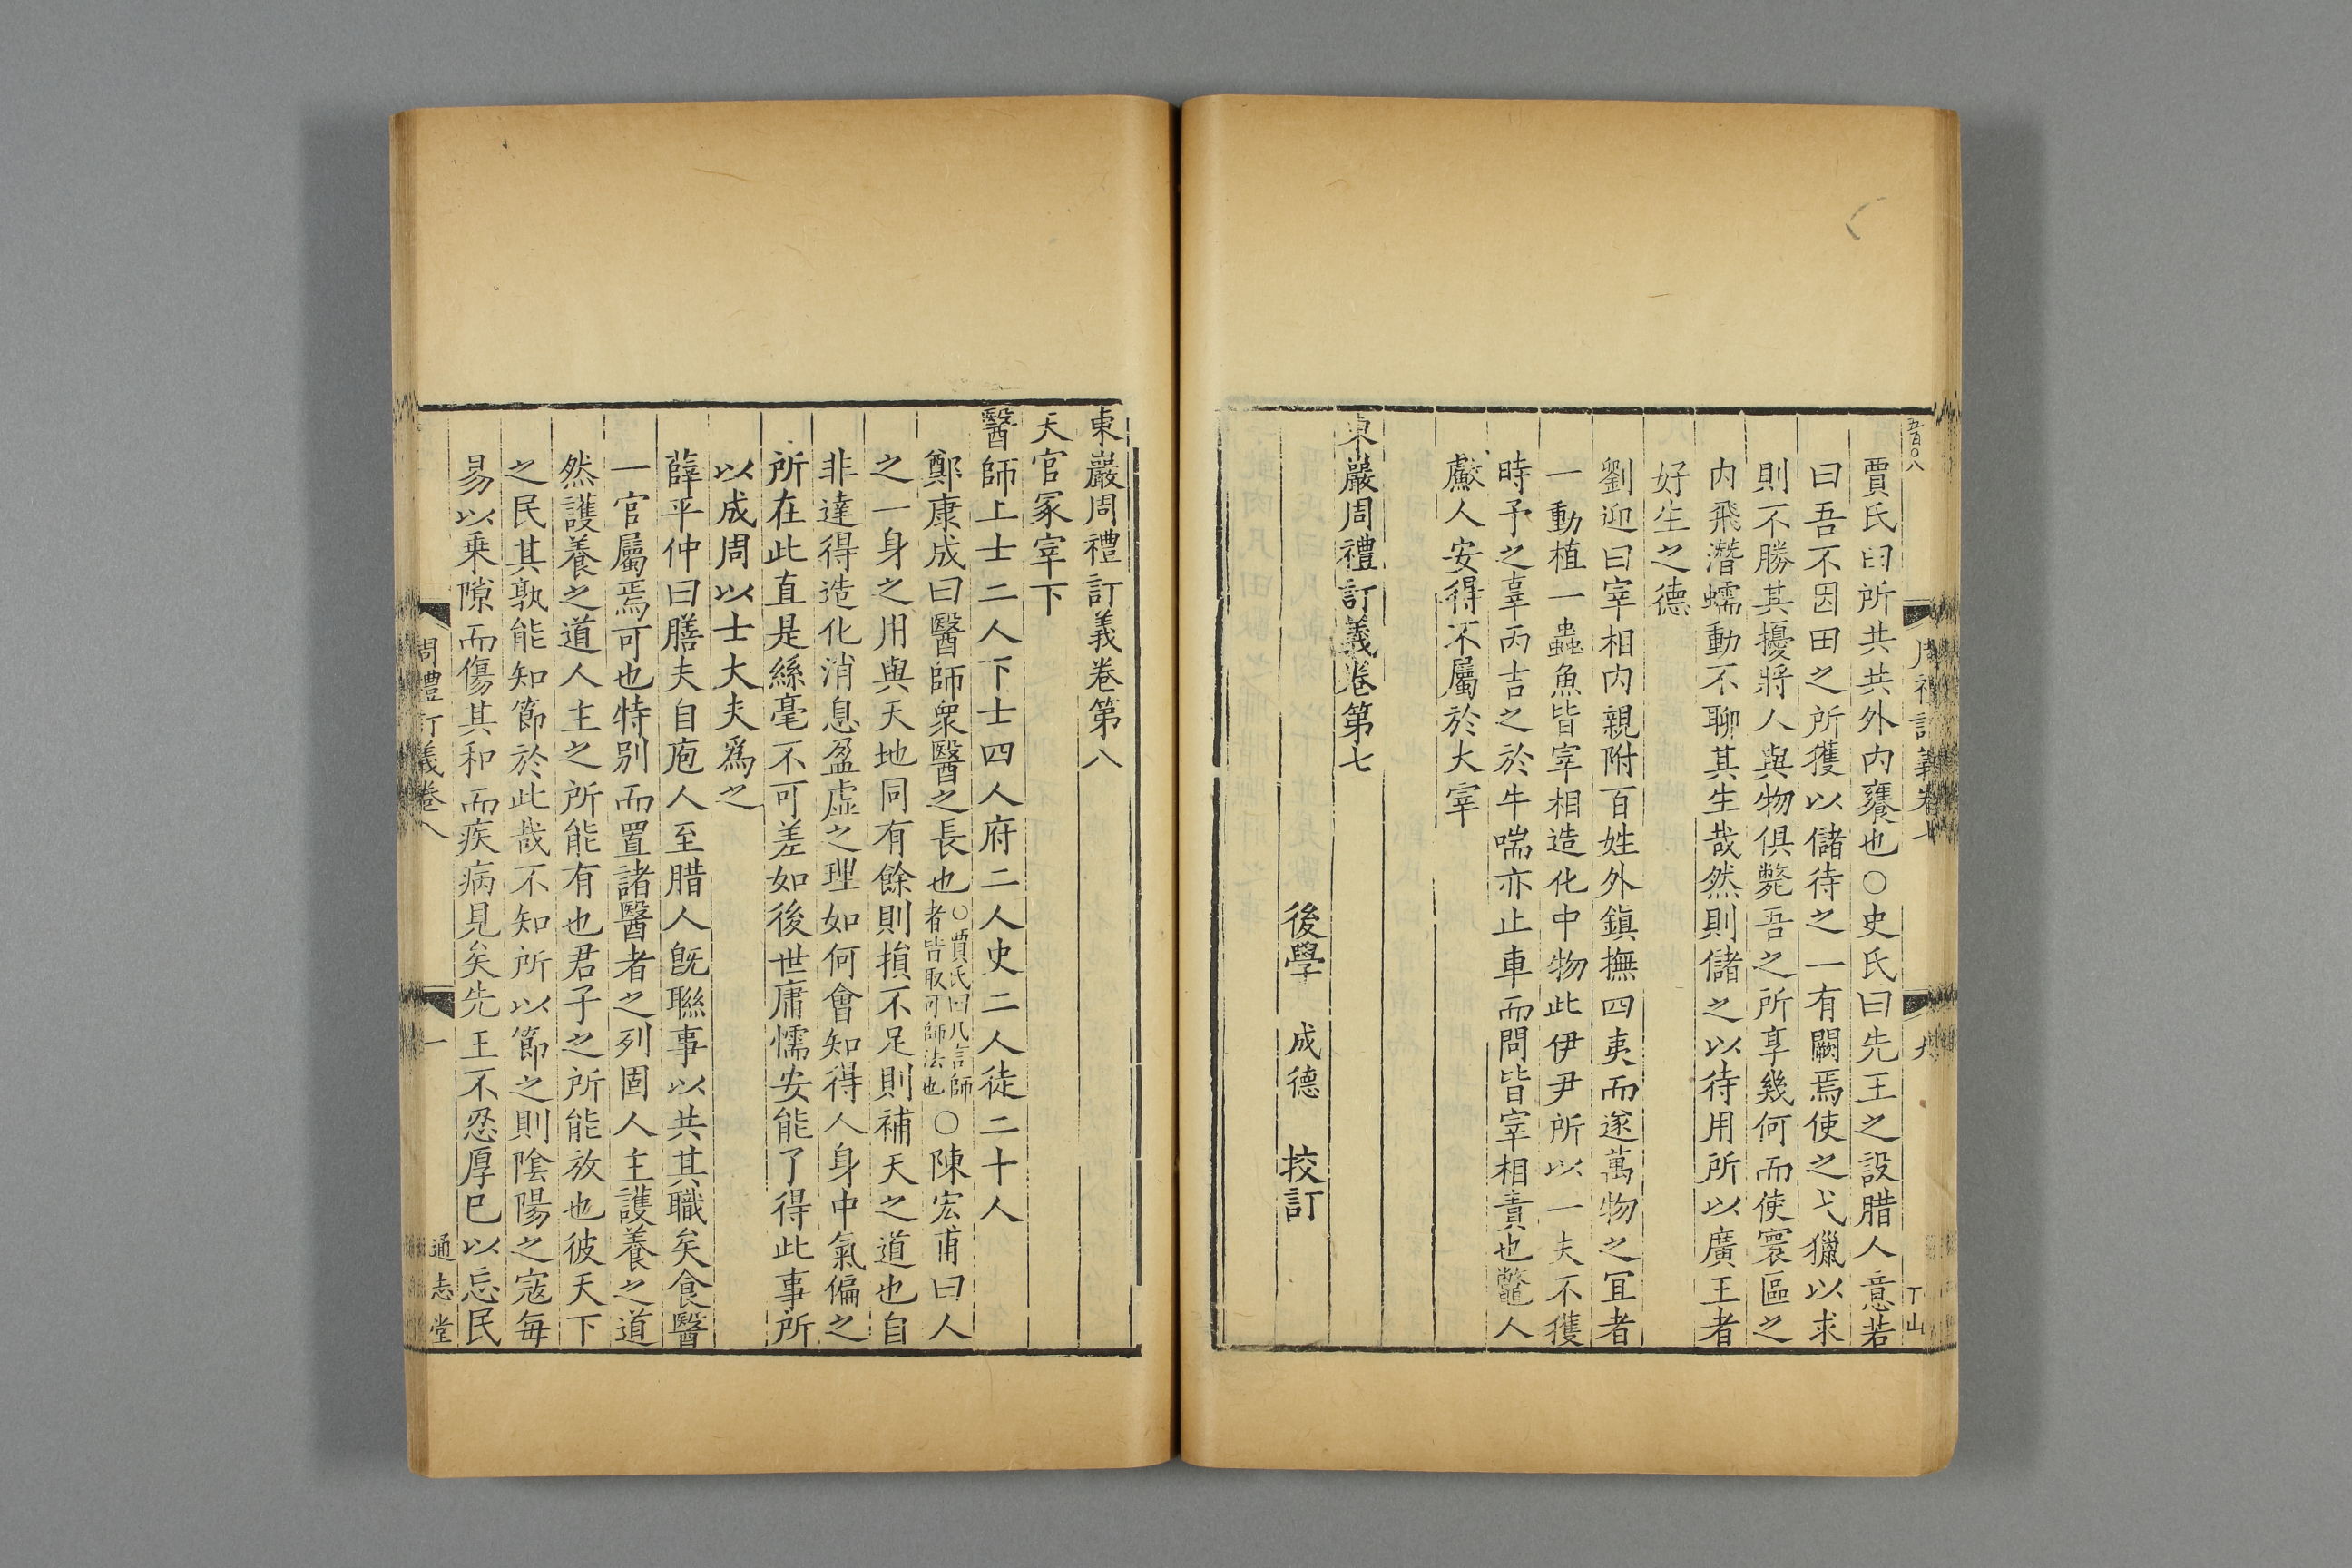 五百〇八
周禮訂義卷七
九
賈氏曰所共共外內饔也○史氏曰先王之設腊人意若
曰吾不因田之所獲以儲待之一有闕焉使之弋獵以求
則不勝其擾將人與物俱斃吾之所享幾何而使寰區之
內飛潛蠕動不聊其生哉然則儲之以待用所以廣王者
好生之德
劉迎曰宰相內親附百姓外鎮撫四夷而遂萬物之宜者
一動植一蟲魚皆宰相造化中物此伊尹所以一夫不獲
時予之辜丙吉之於牛喘亦止車而問皆宰相責也鼈人
䱷人安得不屬於大宰
東巖周禮訂義卷第七
後學 成德 挍訂
東巖周禮訂義卷第八
天官冢宰下
醫師上士二人下士四人府二人史二人徒二十人
鄭康成曰醫師衆醫之長也○賈氏曰凡言師者皆取可師法也○陳宏甫曰人
之一身之用與天地同有餘則損不足則補天之道也自
非達得造化消息盈虛之理如何會知得人身中氣偏之
所在此直是絲毫不可差如後世庸懦安能了得此事所
以成周以士大夫爲之
薛平仲曰膳夫自庖人至腊人旣聮事以共其職矣食醫
一官屬焉可也特別而置諸醫者之列固人主護養之道
然護養之道人主之所能有也君子之所能放也彼天下
之民其孰能知節於此哉不知所以節之則陰陽之寇每
易以乘隙而傷其和而疾病見矣先王不忍厚已以忘民
周禮訂義卷八
一
通志堂